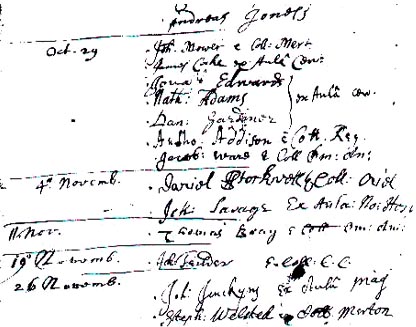 Andreas Jones
Oct. 29 Joh: Mower e Coll: Mert
Cake ex Aulâ Cerv.
Jona: Edwards
Nath: Adams ex Aulâ cer.
Dan: Gardiner
Antho Addison e Coll. Reg.
Jacob: Ward e Coll Om: An:
4° Novemb. Daniel Stockwell e Coll: Oriel
Joh: Savage Ex Aula:
11 Nov. Thomas Bray e Coll Om: Ani:
19° Novemb. E. Coll: C. C.
26 Novemb. Joh: Jenckyns ex Aulâ Mag
Steph: Welsted e Coll: Merton